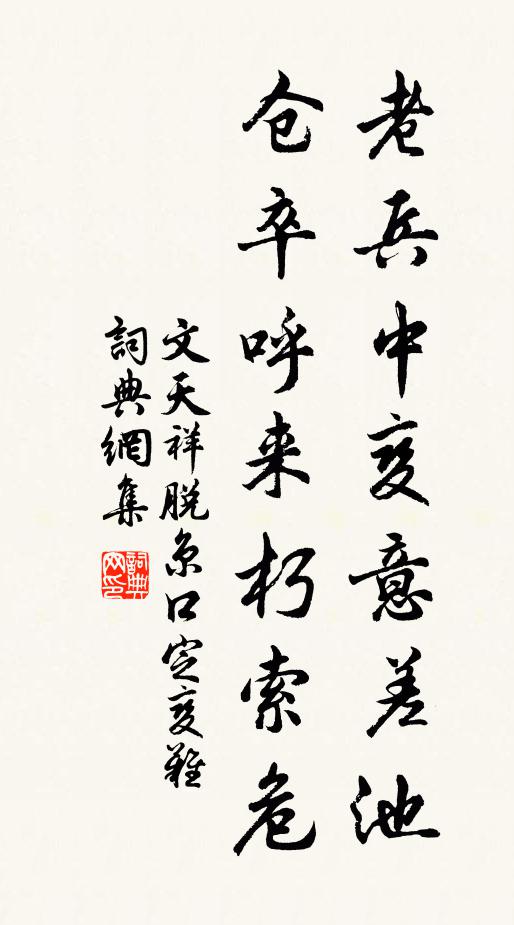 老兵中变意差池
仓卒呼来朽索危
文天祥脱京口定变难
詞典網集
詞典網印